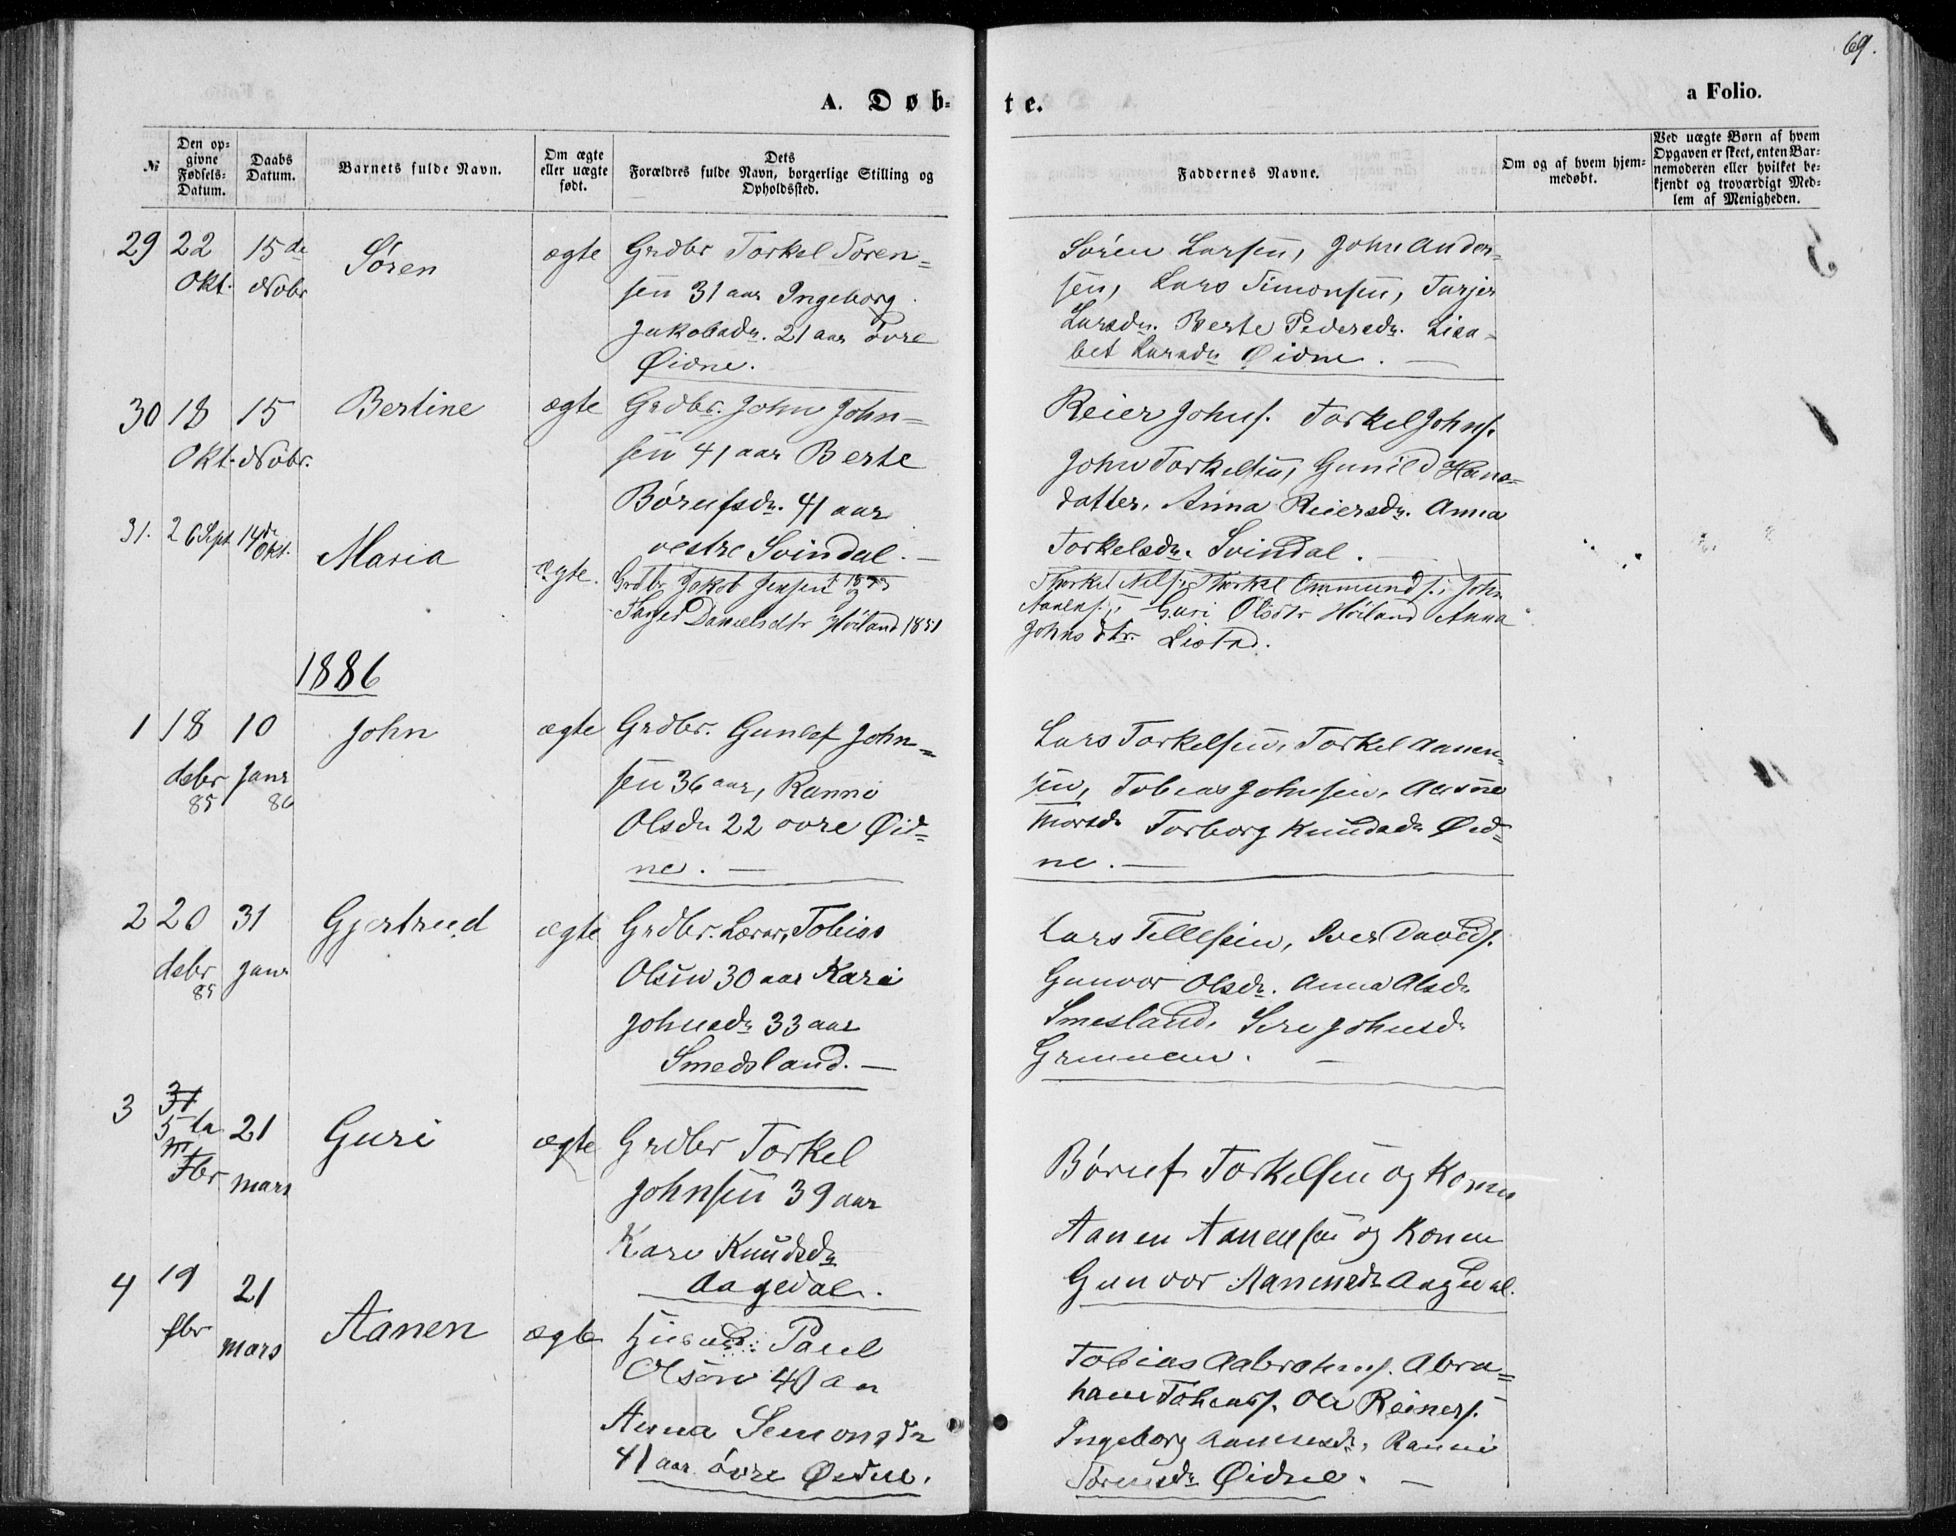 69.
A. Døb-
te.
a Folio.
№
Den op-
givne
Fødsels-
Datum.
Daabs
Datum.
Barnets fulde Navn.
Om ægte
eller uægte
født.
Dets
Forældres fulde Navn, borgerlige Stilling og
Opholdssted.
Faddernes Navne.
Om og af hvem hjem-
medøbt.
Ved uægte Børn af hvem
Opgaven er skeet, enten Bar-
nemoderen eller hvilket be-
kjendt og troværdigt Med-
lem af Menigheden.
29 22 Okt. 15de Nobr Søren ægte
Grdbr Torkel Soren=
sen 31 aar Ingeborg
Jakobsdr. 21 aar øvre
Øidne.
Søren Larsen, John Ander-
sen, Lars Simonsen, Tarjer
Larsdr. Berte Pedersdr. Lisa-
bet Larsdr Øidne. —
30 18 Okt. 15 Nobr. Bertine ægte
Grdbr. John John=
sen 41 aar Berte
Børufsdr. 41 aar
vestre Svindal. —
Reier Johns. Torkel Johns.
John Torkelsen, Gunild Hans-
datter, Anna Reiersdr. Anna
Torkelsdr. Svindal. —
31. 26 Sept 14de Okt. Maria ægte.
Grdbr Jakob Jensen
Danielsdtr Høiland 1851
Thorkel Nels. Thorkel Ommunds. John
Aanens. Guri Olsdtr Høiland Anna
Johnsdtr. Listad.
1886
1 18 dsbr 85 10 Janr 86 John ægte
Grdbr. Gunlef John=
sen 36 aar, Ranni
Olsdr 22 øvre Øid=
ne. —
Lars Torkelsen, Torkel Aanen-
sen, Tobias Johnsen,
Torborg Knudsdr Øid=
ne. —
2 20 dsbr 85 31 Janr Gjertrud ægte
Grdbr. Lærer, Tobias
Olsen 30 aar Kari
Johnsdr 33 aar
Smedsland. —
Lars Tellefsen, Iver Davids.
Gunvor Olsdr. Anna Olsdr
Smesland, Siri Johnsdr
—
3 5te Fbr 21 mars Guri ægte
Grdbr Torkel
Johnsen 39 aar
Kari Knudsdr
Aagedal.
Børuf Torkelsen og Kone
Aanen Aanensen og Konen
Gunvor Aanensdr Aagedal.
4 19 fbr 21 mars Aanen ægte
Husmd: Paul
Olsen 40 aar
Anna Semonsdr
41 aar øvre Øidne.
Tobias Aabrahms. Abra=
ham Tobiass. Ole Reiners.
Ingeborg Aanensdr, Ranni
Torensdr Øidne. —